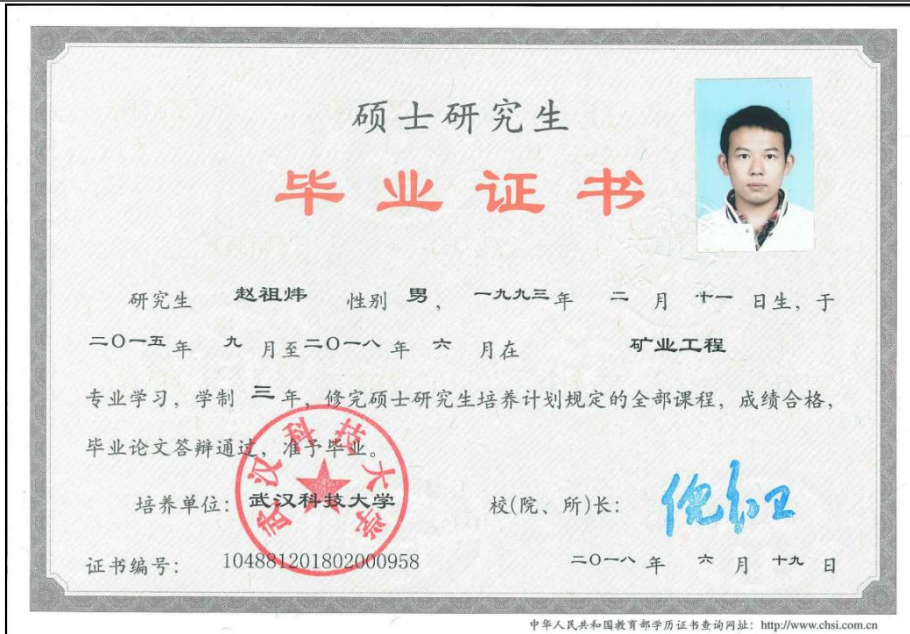 硕士研究生
毕业证书
研究生 赵祖炜 性别 男， 一九九三年 二 月 十一 日生，于
二〇一五年 九 月至二〇一八年 六 月在 矿业工程
专业学习，学制 三 年，修完硕士研究生培养计划规定的全部课程，成绩合格，
毕业论文答辩通过，准予毕业。
武汉科技大学
培养单位：武汉科技大学 校(院、所)长：倪红卫
证书编号：104881201802000958 二〇一八年 六 月 十九 日
中华人民共和国教育部学历证书查询网址：http://www.chsi.com.cn